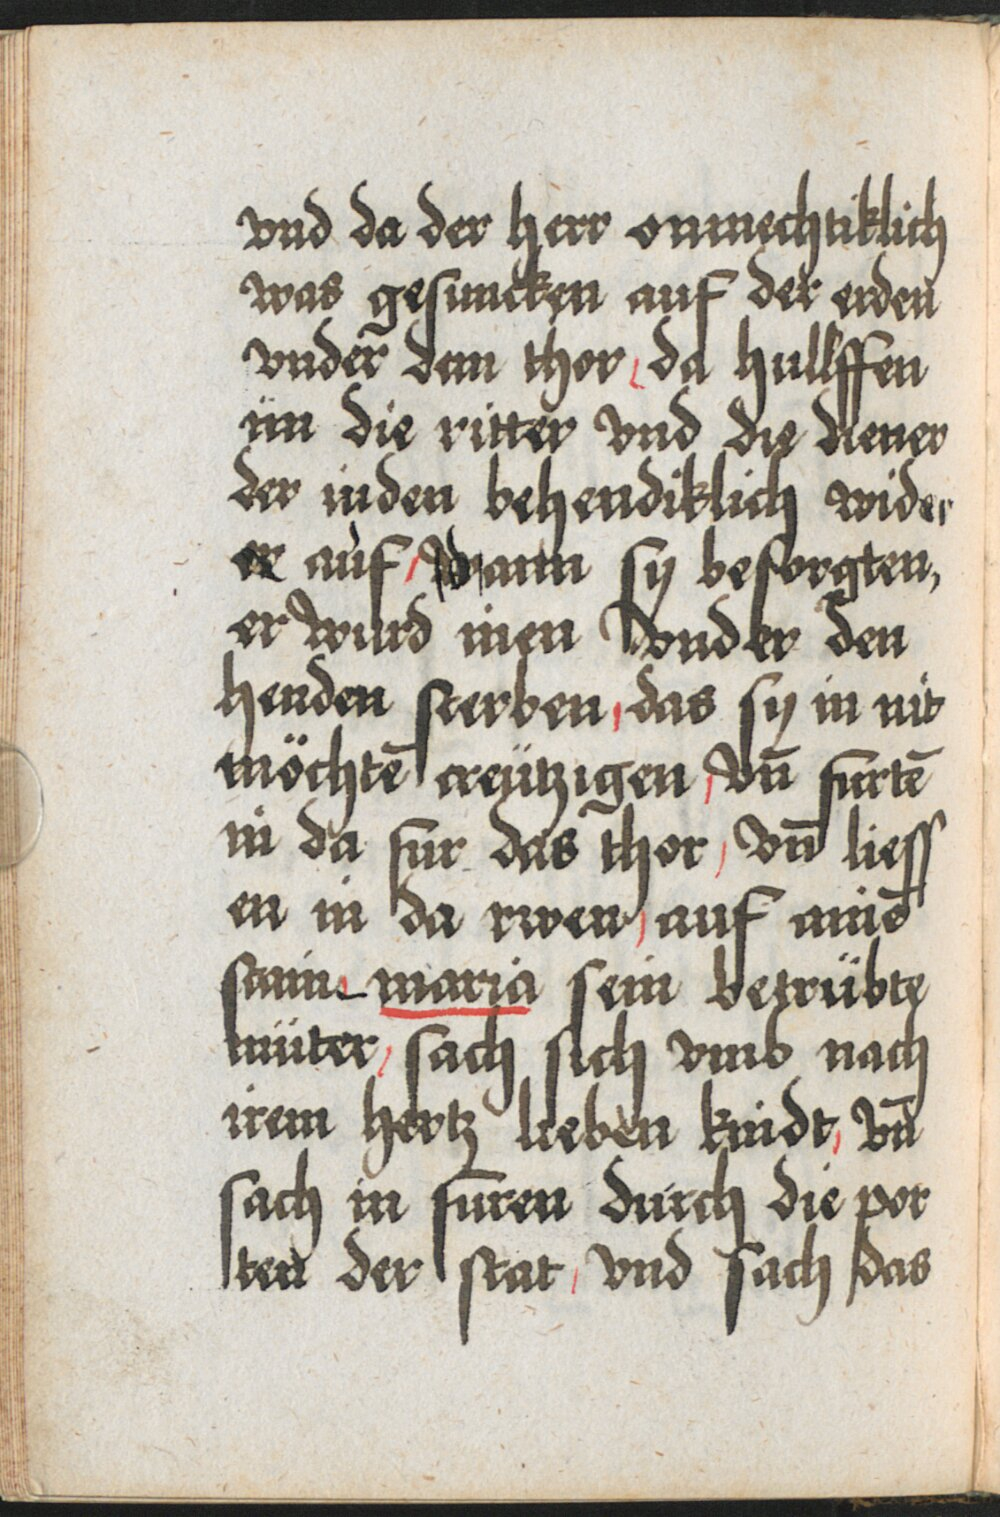 vnd da der herr onmechtiklich
was gesuncken auf der erden
vnder dem thor, da hullffen
im die ritter vnd die diener
der iuden behendiklich wider
auf, Wann sy besorgten,
er wurd inen vnder den
henden sterben, das sy in nit
möchtē creützigen, vn̄ furtē
in da fur das thor, vn̄ liess
en in da rwen, auf ainē
stain, maria sein betrübte
můter, sach sich vmb nach
irem hertz lieben kindt, vn̄
sach in fůren durch die por
ten der stat, vnd sach das